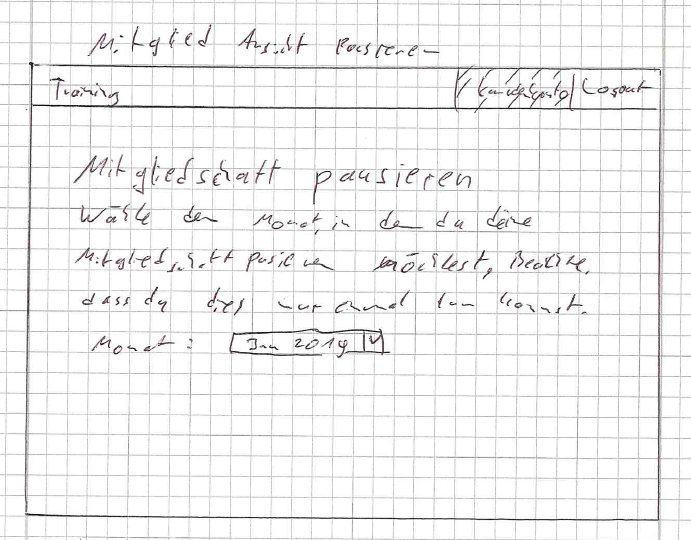 Mitglied Ansicht Pausieren
Training Kundenkonto Logout
Mitgliedschaft pausieren
Wähle den Monat, in dem du deine
Mitgliedschaft pasieren möchtest, Beachte,
dass du dies nur einmal tun kannst.
Monat: Jan 2019